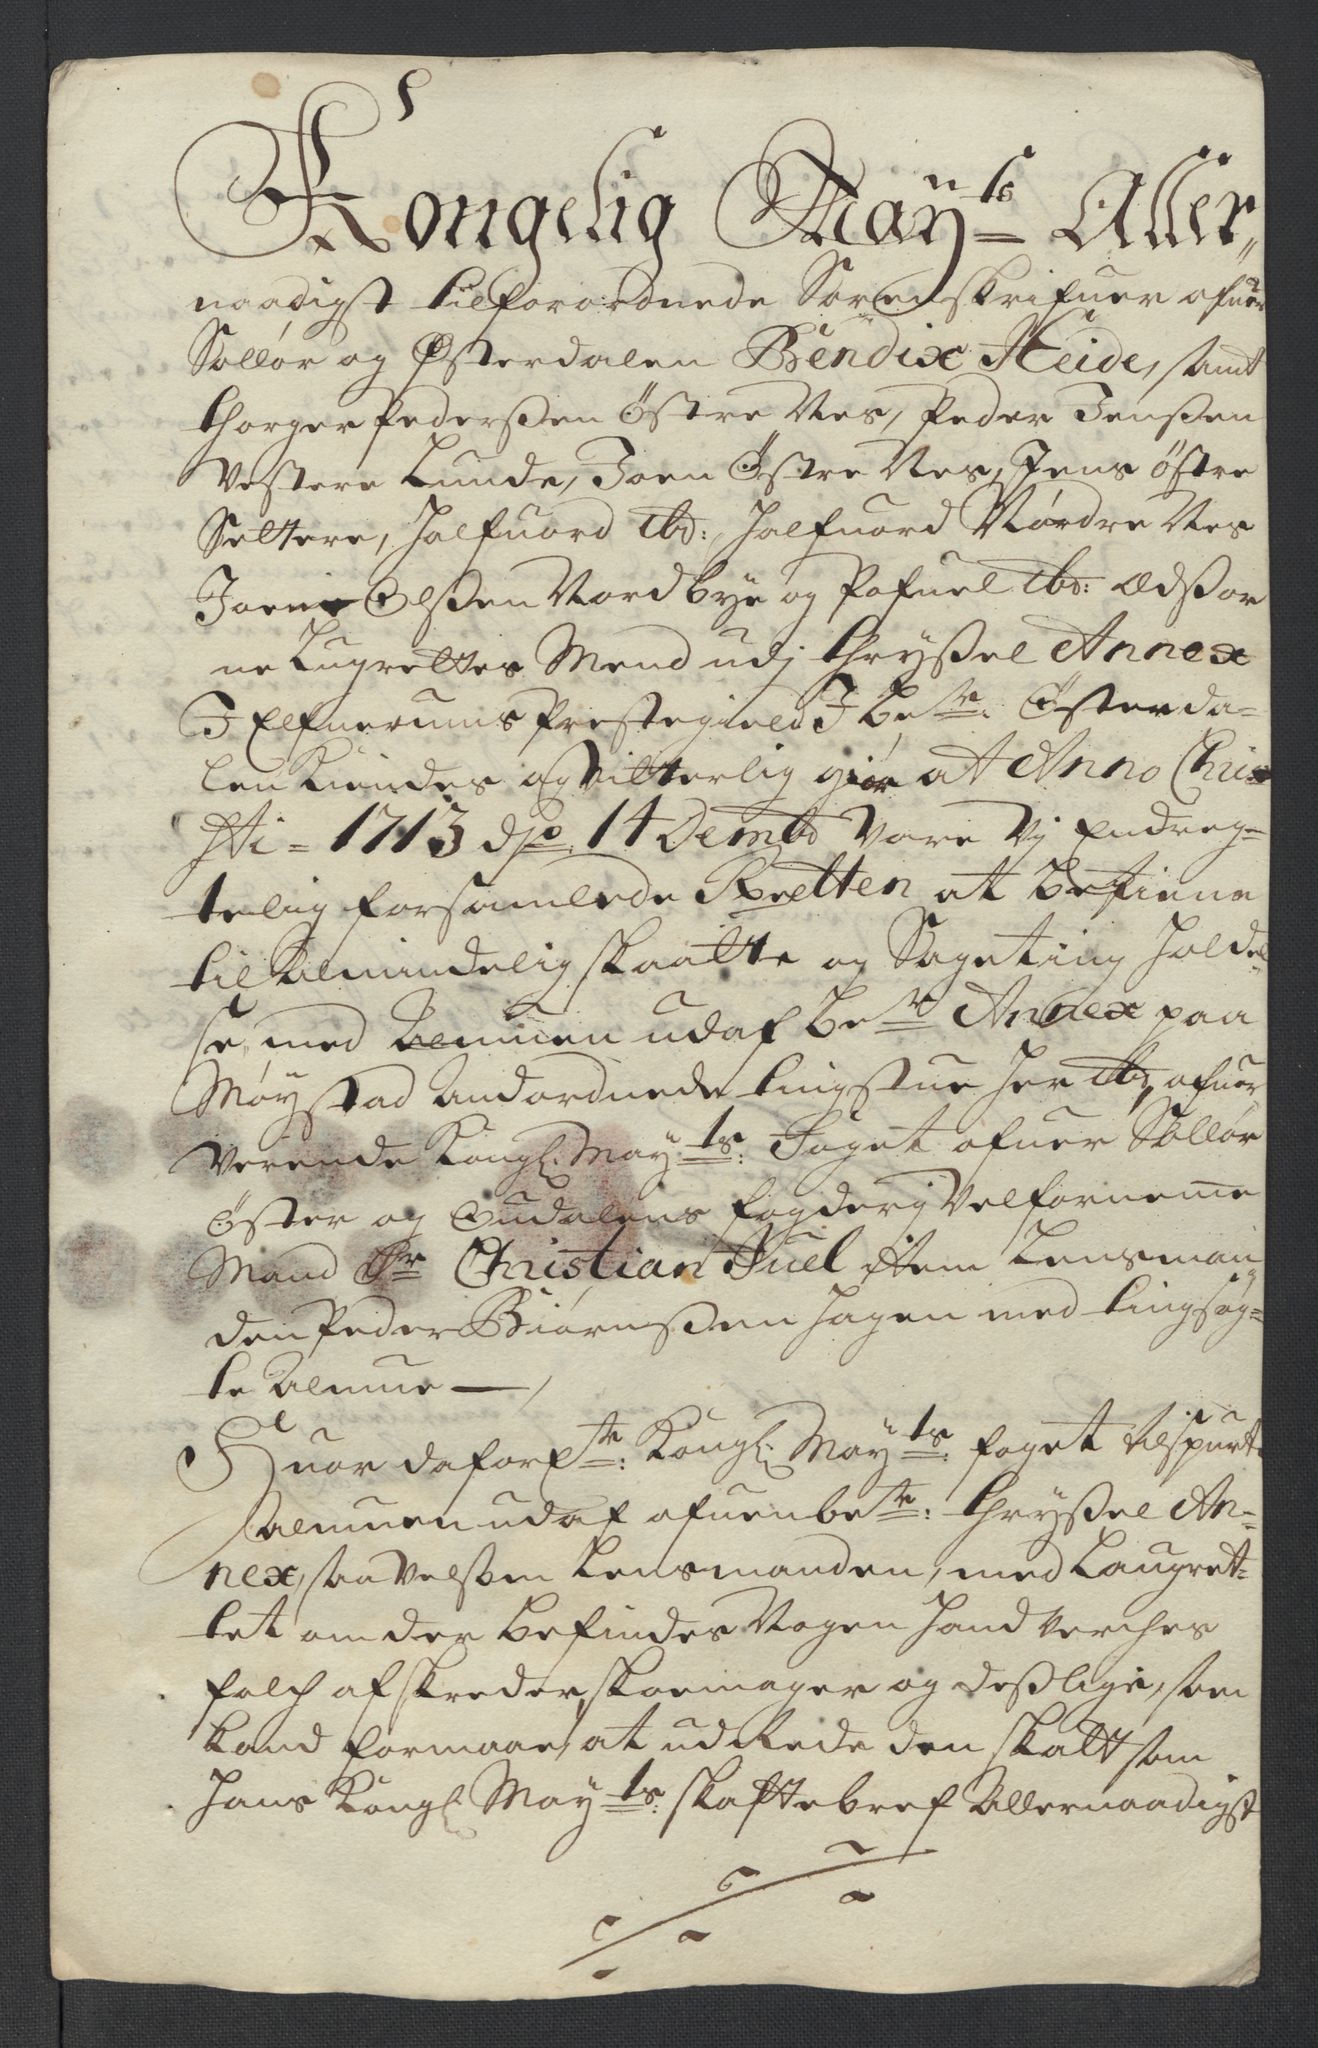 Kongelig Maÿts Aller„
naadigst tilforordnede Sorenskrifuer ofuer
Sollør og Østerdalen Bendix Heide, samt
Thorger Pederßen Östre Nes, Peder Jenßen
Vestere Lunde, Joen Östre Nes, Jens östre
Seltere, Halfuord ibd: Halfuord Nordre Nes
Joen Olßen Nordbye og Pofuel ibd: Edßor
ne Lugrettes Mend udj Thryßel Annex
J Elfuerums Prestegield J bete: Österda=
len Kiendes og Vitterlig giør at Anno Chri=
sti = 1713 dend 14 Dembr Vare Vj Endreg=
telig forsamlede Retten at betiene
til Almindelig skatte og Sageting Holdel
se, med Almuen udaf bete Annex paa
Møystad Andordnede tingstue her ibd, ofuer
Verende Kongl. Maÿts: Foget ofuer Sollør
Öster og Gudalens fogderj Velforneme
Mand Sr Christian Juel item Lensman
den Peder Biørnßen Hagen med tingsøg=
te Almue —,
Huor da forste: Kongl: Maÿts: foget tilspurte
Almuen udaf ofuenbete: Thryßel An=
nex, saa Velsom Lensmanden, med Laugret=
tet om der befindes Nogen Hand Verches
folch af skreder, skoemager og deßlige, som
Kand formaae, at udRede den skatt som
Hans Kongl Maÿts: skattebref Allernaadigst